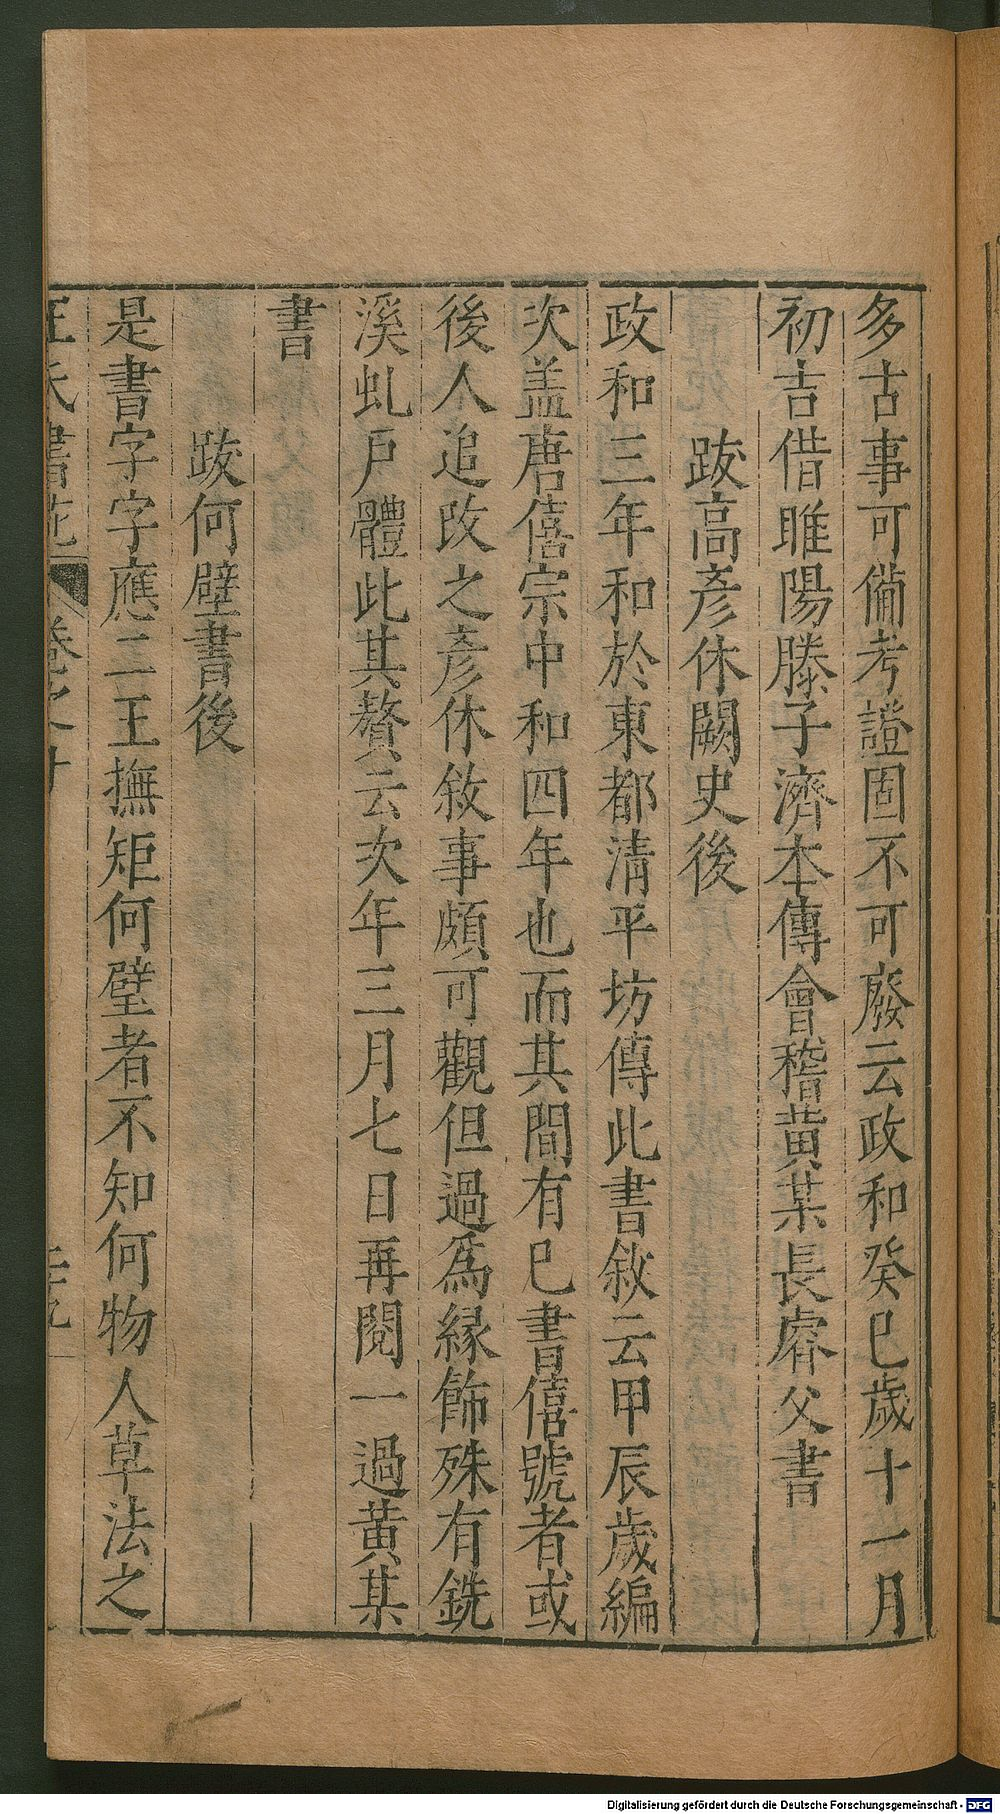 多古事可備考證固不可廢云政和癸巳歲十一月
初吉借睢陽滕子濟本傳會稽黄某長睿父書
跋高彥休闕史後
政和三年和於東都清平坊傳此書敘云甲辰歲編
次盖唐僖宗中和四年也而其間有已書僖號者或
後人追改之彥休敘事頗可觀但過爲緣飾殊有銑
溪虬戶體此其贅云次年三月七日再閱一過黄某
書
跋何壁書後
是書字字應二王撫矩何壁者不知何物人草法之
王氏書苑 卷之十 二十九
Digitalisierung gefördert durch die Deutsche Forschungsgemeinschaft - DFG